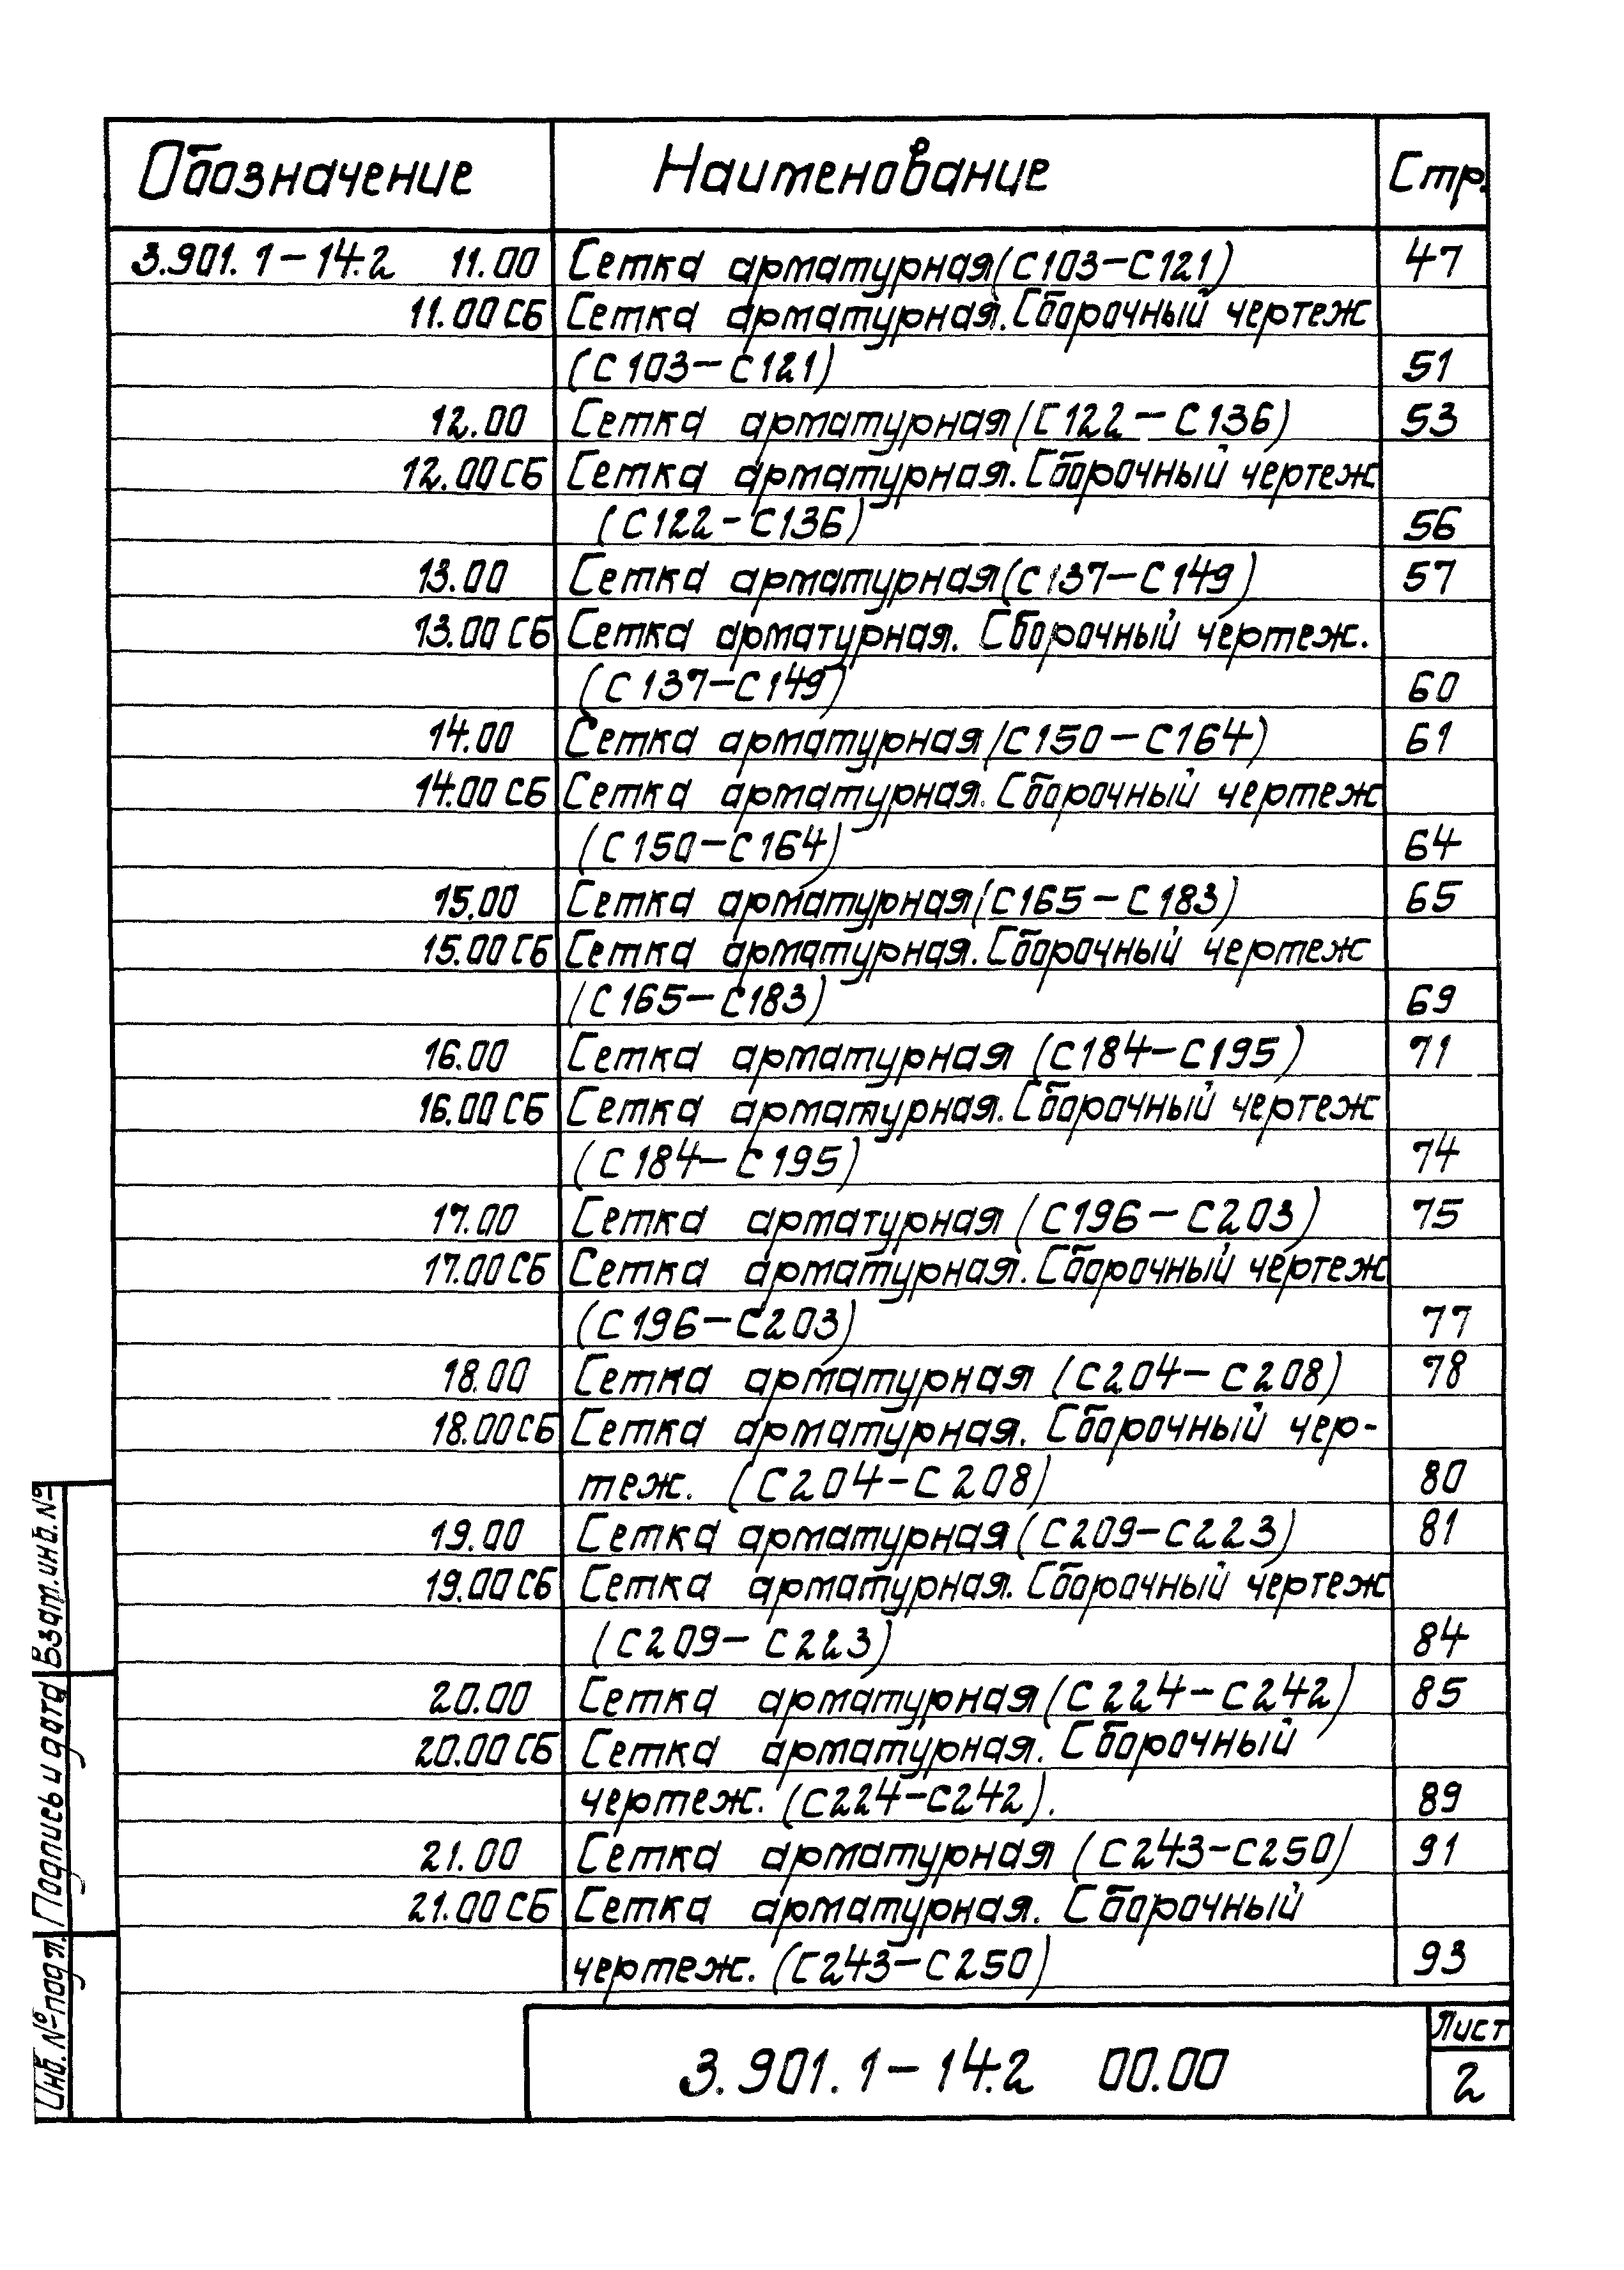 Обозначение Наименование Стр.
3.901.1-14.2 11.00 Сетка арматурная (С103-С121) 47
11.00 СБ Сетка арматурная. Сборочный чертеж
(С103-С121) 51
12.00 Сетка арматурная (С122-С136) 53
12.00 СБ Сетка арматурная. Сборочный чертеж
(С122-С136) 56
13.00 Сетка арматурная (С137-С149) 57
13.00 СБ Сетка арматурная. Сборочный чертеж.
(С137-С149) 60
14.00 Сетка арматурная (С150-С164) 61
14.00 СБ Сетка арматурная. Сборочный чертеж
(С150-С164) 64
15.00 Сетка арматурная (С165-С183) 65
15.00 СБ Сетка арматурная. Сборочный чертеж
(С165-С183) 69
16.00 Сетка арматурная (С184-С195) 71
16.00 СБ Сетка арматурная. Сборочный чертеж
(С184-С195) 74
17.00 Сетка арматурная (С196-С203) 75
17.00 СБ Сетка арматурная. Сборочный чертеж
(С196-С203) 77
18.00 Сетка арматурная (С204-С208) 78
18.00 СБ Сетка арматурная. Сборочный чер-
теж. (С204-С208) 80
19.00 Сетка арматурная (С209-С223) 81
19.00 СБ Сетка арматурная. Сборочный чертеж
(С209-С223) 84
20.00 Сетка арматурная (С224-С242) 85
20.00 СБ Сетка арматурная. Сборочный
чертеж. (С224-С242). 89
21.00 Сетка арматурная (С243-С250) 91
21.00 СБ Сетка арматурная. Сборочный
чертеж. (С243-С250) 93
Взам.инв.№
Подпись и дата
Инв.№подл.
3.901.1-14.2 00.00
Лист
2